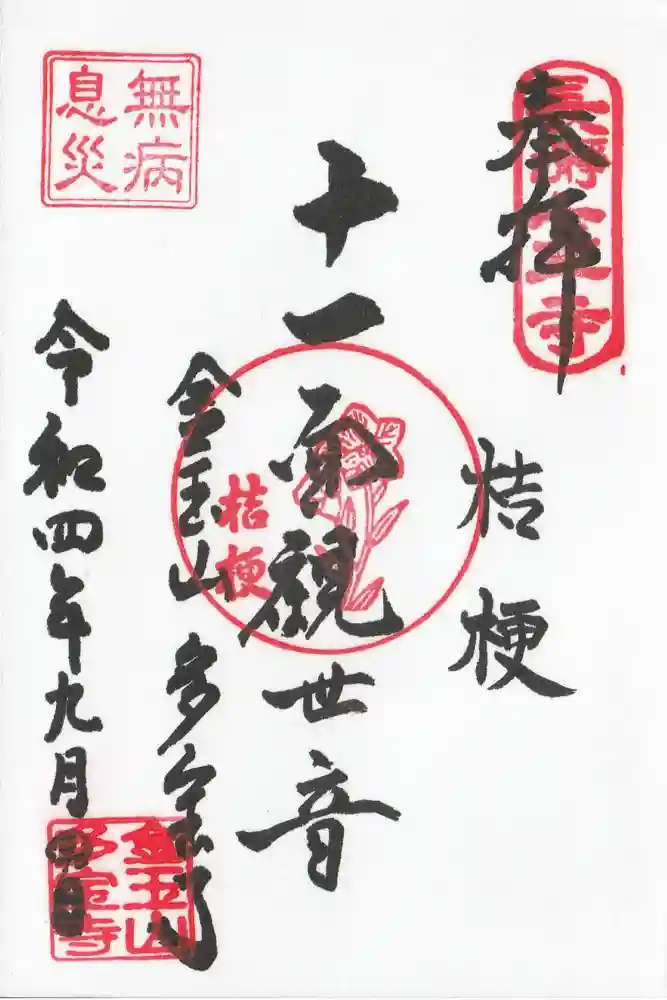 奉拝
長瀞七草寺
桔梗
十一面觀世音
桔梗
金玉山 多宝寺
令和四年九月
無病
息災
金玉山
多宝寺